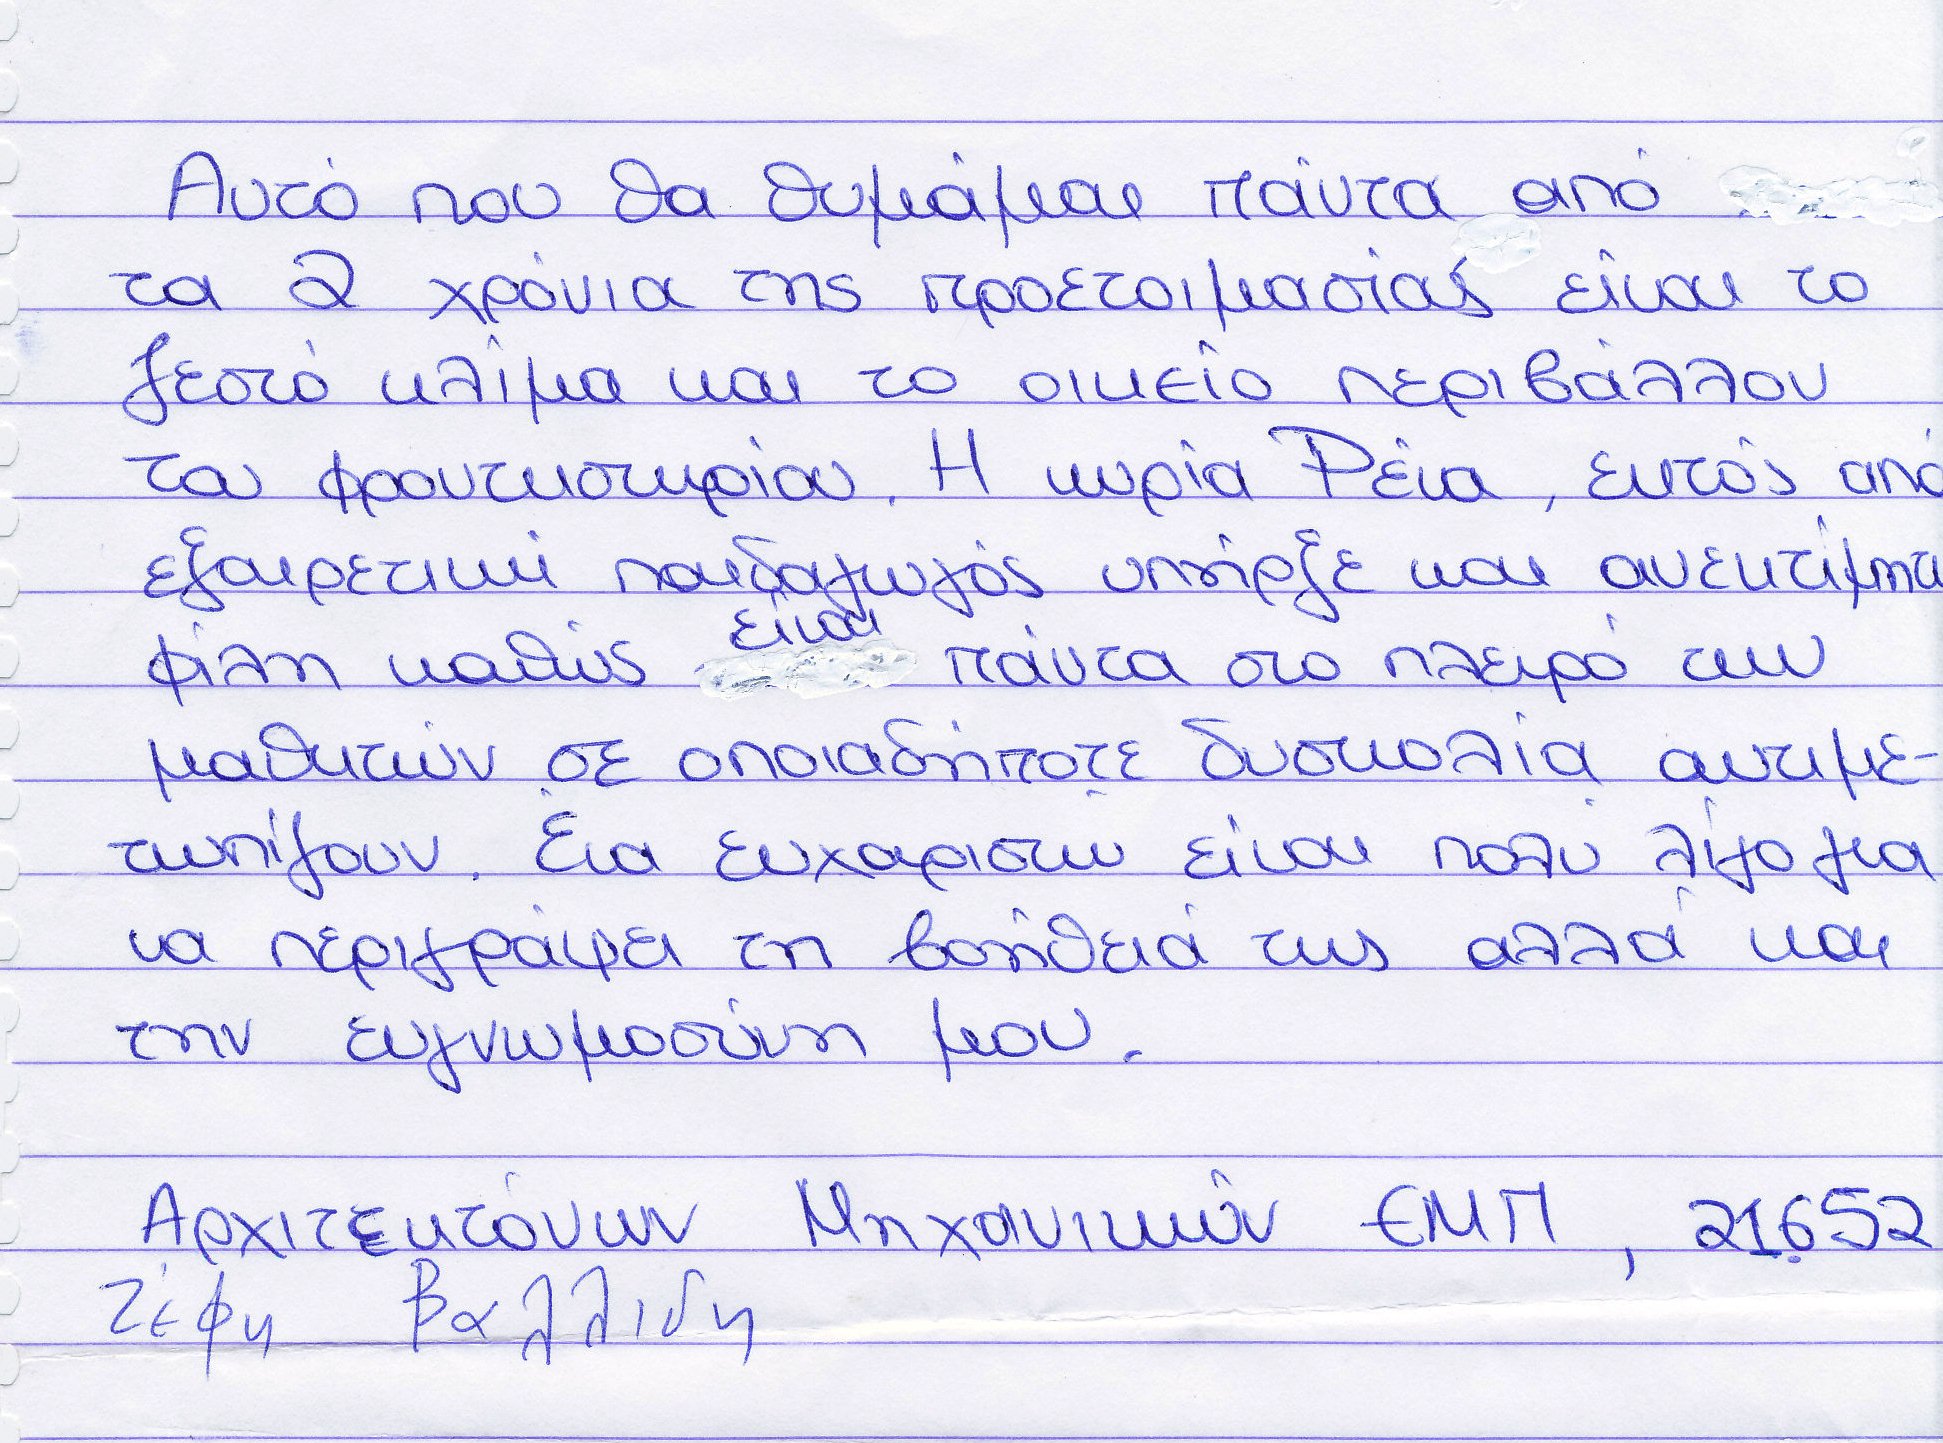 Αυτό που θα θυμάμαι πάντα από
τα 2 χρόνια της προετοιμασίας είναι το
ζεστό κλίμα και το οικείο περιβάλλον
του φροντιστηρίου. Η κυρία Ρέια, εκτός από
εξαιρετική παιδαγωγός υπήρξε και ανεκτίμητη
φίλη καθώς είναι πάντα στο πλευρό των
μαθητών σε οποιαδήποτε δυσκολία αντιμε-
τωπίζουν. Ένα ευχαριστώ είναι πολύ λίγο για
να περιγράψει τη βοήθειά της αλλά και
την ευγνωμοσύνη μου.
Αρχιτεκτόνων Μηχανικών ΕΜΠ, 21652
Ζέφη Βαλλιδη